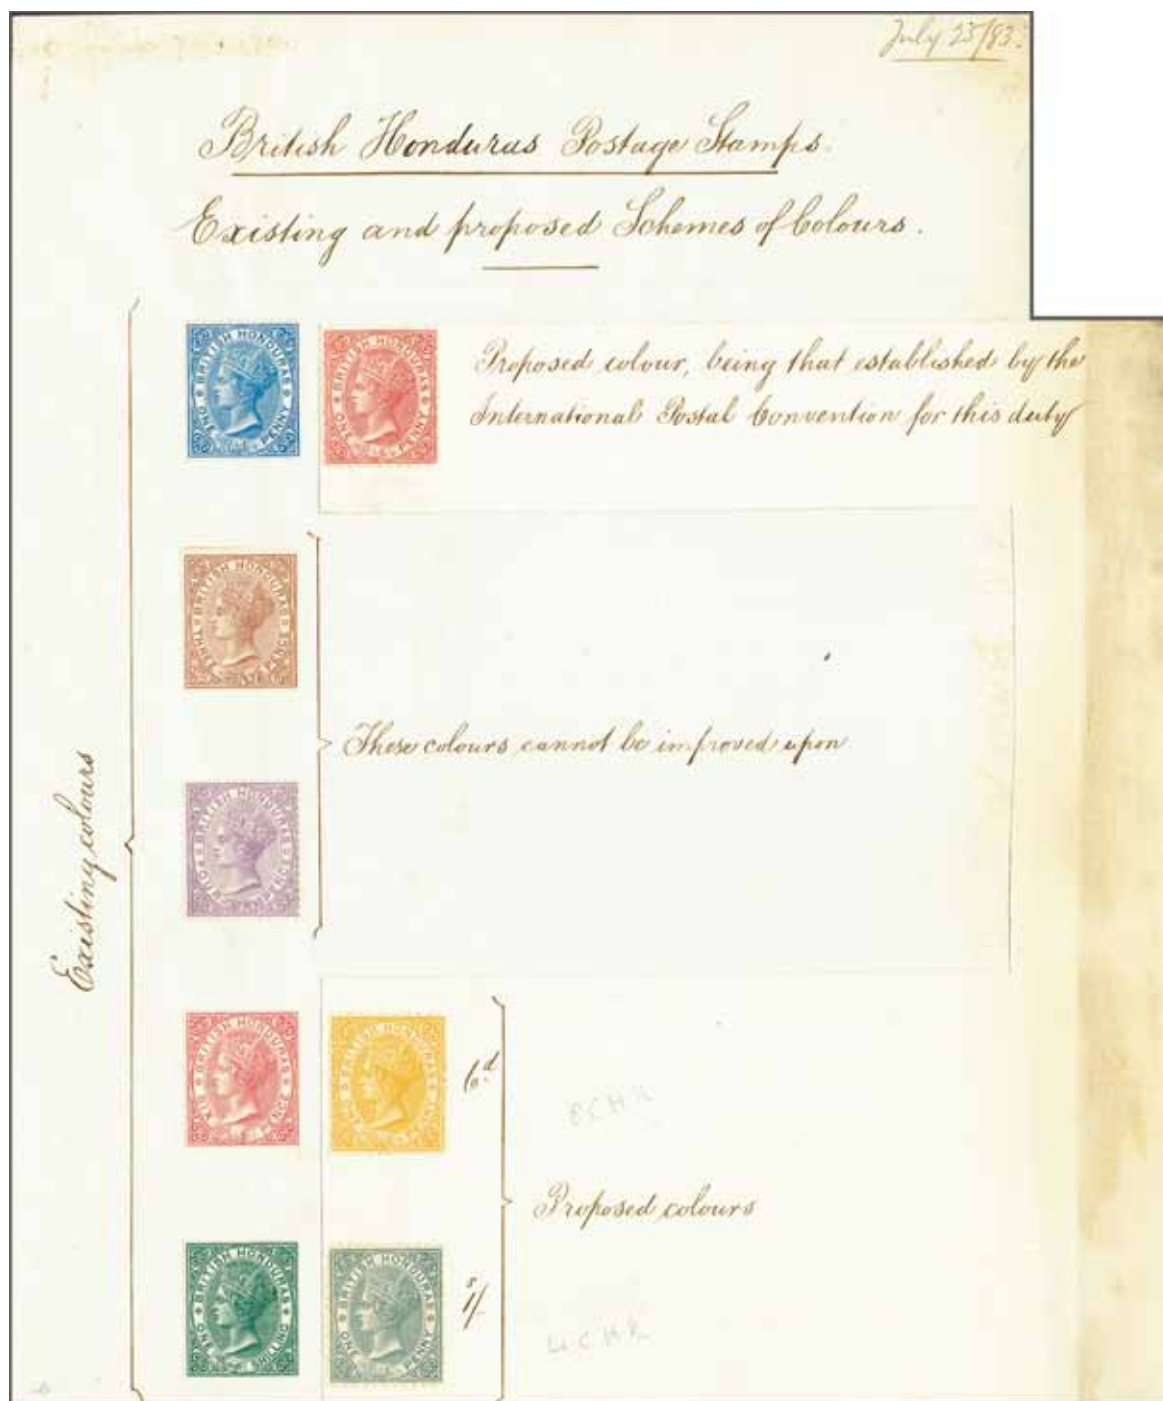 July 23/83.
British Honduras Postage Stamps.
Existing and proposed Schemes of Colours.
Existing colours
BRITISH HONDURAS
ONE PENNY
BRITISH HONDURAS
ONE PENNY
Proposed colour, being that established by the
International Postal Convention for this duty
BRITISH HONDURAS
THREE PENCE
These colours cannot be improved upon
BRITISH HONDURAS
FOUR PENCE
BRITISH HONDURAS
SIX PENCE
BRITISH HONDURAS
ONE PENNY
6d
Proposed colours
BRITISH HONDURAS
ONE SHILLING
BRITISH HONDURAS
ONE PENNY
s
1/-